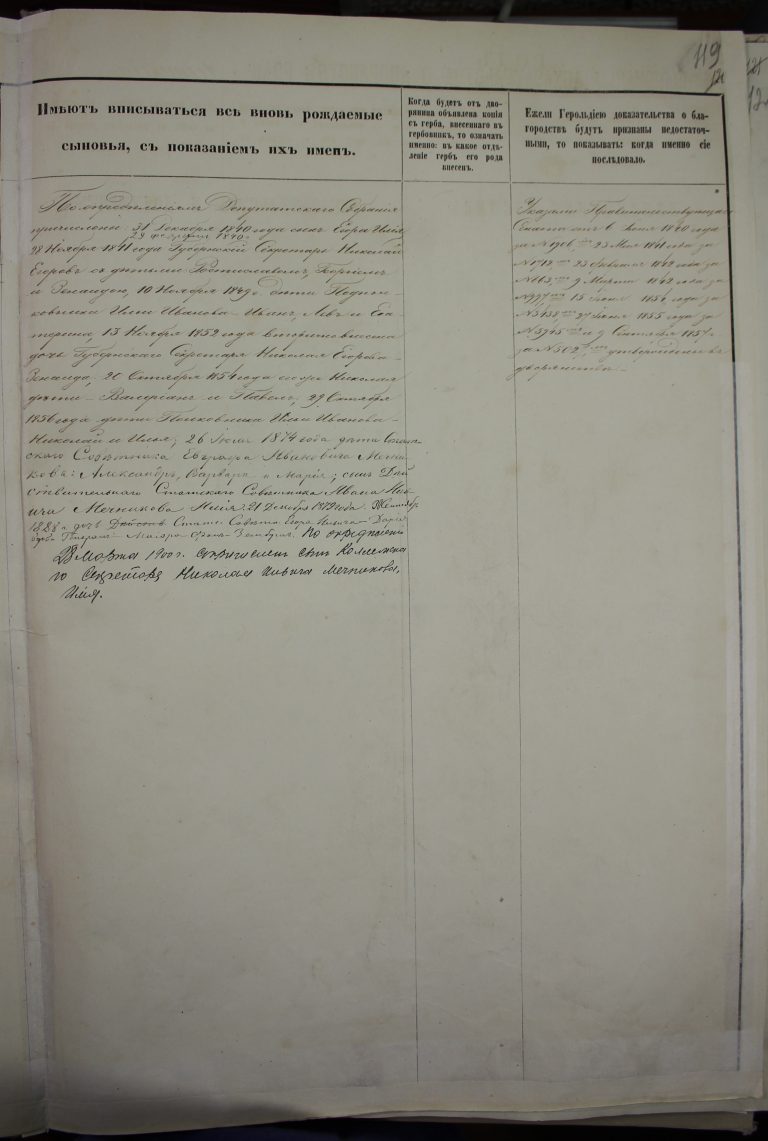 119
121
Имѣютъ вписываться всѣ вновь рождаемые
сыновья, съ показаніемъ ихъ именъ.
Когда будетъ отъ дво-
рянина объявлена копія
съ герба, внесеннаго въ
гербовникъ, то означать
именно: въ какое отдѣ-
леніе гербъ его рода
внесенъ.
Ежели Герольдіею доказательства о бла-
городствѣ будутъ признаны недостаточ-
ными, то показывать: когда именно сіе
послѣдовало.
По опредѣленіямъ Депутатскаго Собранія
причислены: 31 Декабря 1840 года сынъ Егора Илья
29 Февраля 1840 г.
28 Ноября 1841 года Губернскій Секретарь Николай
Егоровъ съ дѣтьми Ростиславомъ,
и Зенаидою, 10 Ноября 1849 дѣти Подпол-
ковника Ильи Иванова Иванъ, Левъ и Ека-
терина, 13 Ноября 1852 года
дочь Губернскаго Секретаря Николая Егорова
Зенаида, 20 Октября 1854 года Николая
дѣти – Валеріанъ и Павелъ, 29 Октября
1856 года дѣти Полковника Ильи Иванова –
Николай и Илья; 26 Іюля 1874 года дѣти
скаго Совѣтника Евграфа Ивановича Мечни-
кова: Александръ, Варвара и Марія; сынъ Дѣй
ствительнаго Статскаго Совѣтника Ивана Иль-
ича Мечникова Илія 21 Декабря 1879 года.
188 г. дочь Дѣйств. Статс. Совѣта Егора Ильича – Дарія
Генералъ – Маіора фонъ
По опредѣленію
28 Марта 1900 г. сопричисленъ сынъ Коллежска
го Секретаря Николая Ильича Мечникова,
Илія.
Указами Правительствующаго
Сената отъ 6 Іюня 1840 года
за № 1906, 23 Мая 1841 года за
№ 1712, 23 Февраля 1842 года за
№ 663, 9 Марта 1842 года за
№ 997, 15 Іюня 1854 года за
№ 3438, 27 Іюня 1855 года за
№ 3745 и 9 Сентября 1857 г.
за № 502 утверждены въ
дворянствѣ. –